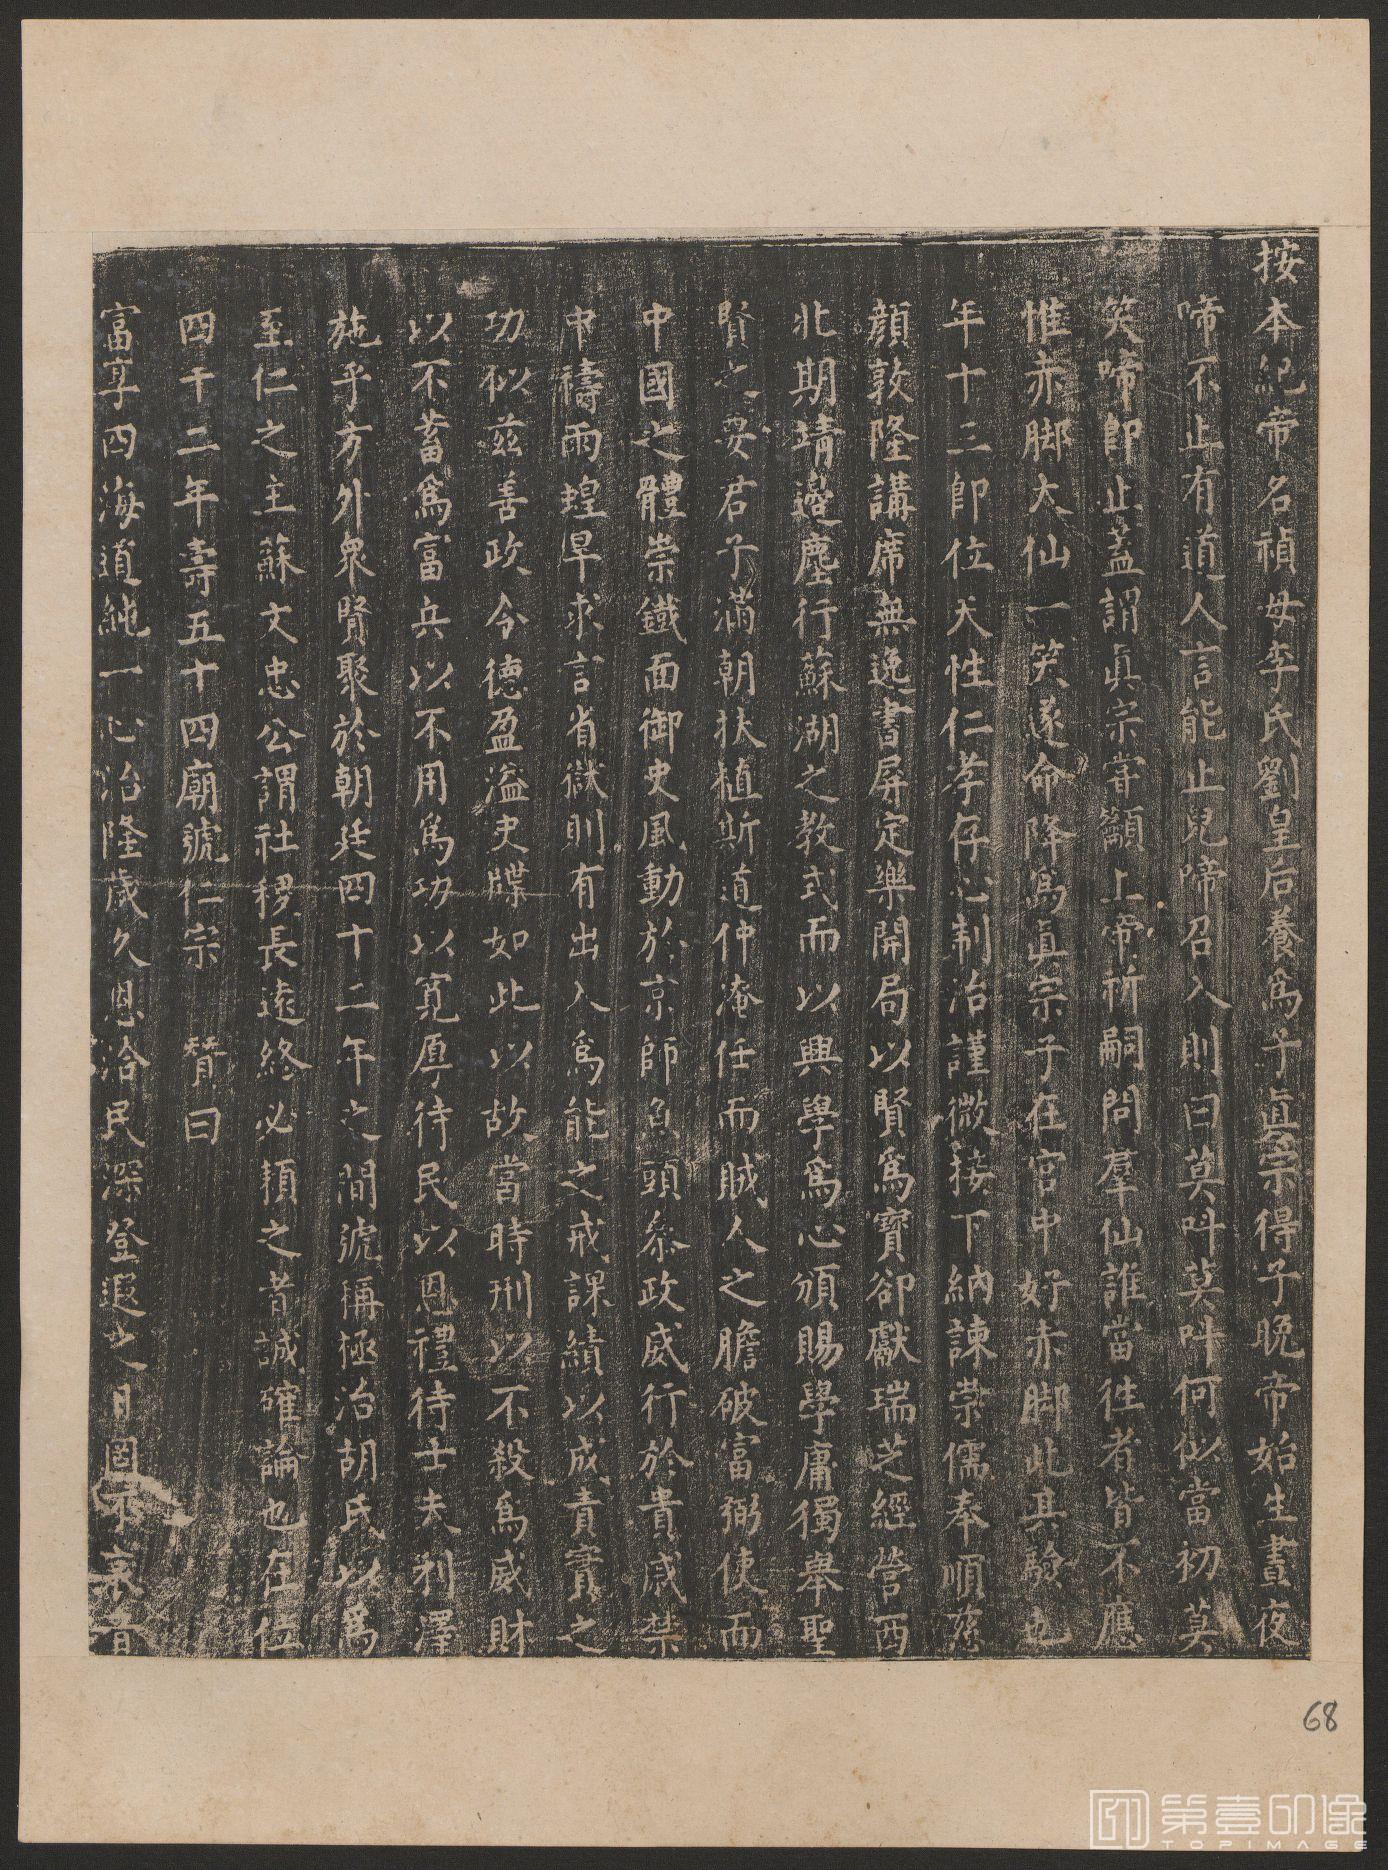 按本紀帝名禎母李氏劉皇后養爲子真宗得子晚帝始生晝夜
啼不止有道人言能止兒啼召入則曰莫叫莫叫何似當初莫
笑啼即止蓋謂眞宗甞籲上帝祈嗣問羣仙誰當徃者皆不應
惟赤脚大仙一笑遂命降爲眞宗子在宮中好赤脚此其驗也
年十三即位天性仁孝存心制治謹微接下納諫崇儒奉順慈
顔敦隆講席無逸書屏定樂開局以賢爲寶卻獻瑞芝經營西
北期靖邉塵行蘇湖之教式而以興學爲心頒賜學庸獨舉聖
賢之要君子滿朝扶植斯道仲淹任而賊人之膽破富弼使而
中國之體崇鐵面御史風動於京師魚頭叅政威行於貴戚禁
中禱雨蝗旱求言省獄則有出入爲能之戒課績以成責實之
功似兹善政令德盈溢史牒如此以故當時刑以不殺爲威財
以不蓄爲富兵以不用爲功以寛厚待民以恩禮待士夫利澤
施乎方外衆賢聚於朝廷四十二年之間號稱極治胡氏以爲
至仁之主蘇文忠公謂社稷長遠終必頼之者誠確論也在位
四十二年壽五十四廟號仁宗 賛曰
富享四海道純一心治隆歲久恩洽民深登遐之日罔不哀
68
第壹印像
TOPIMAGE